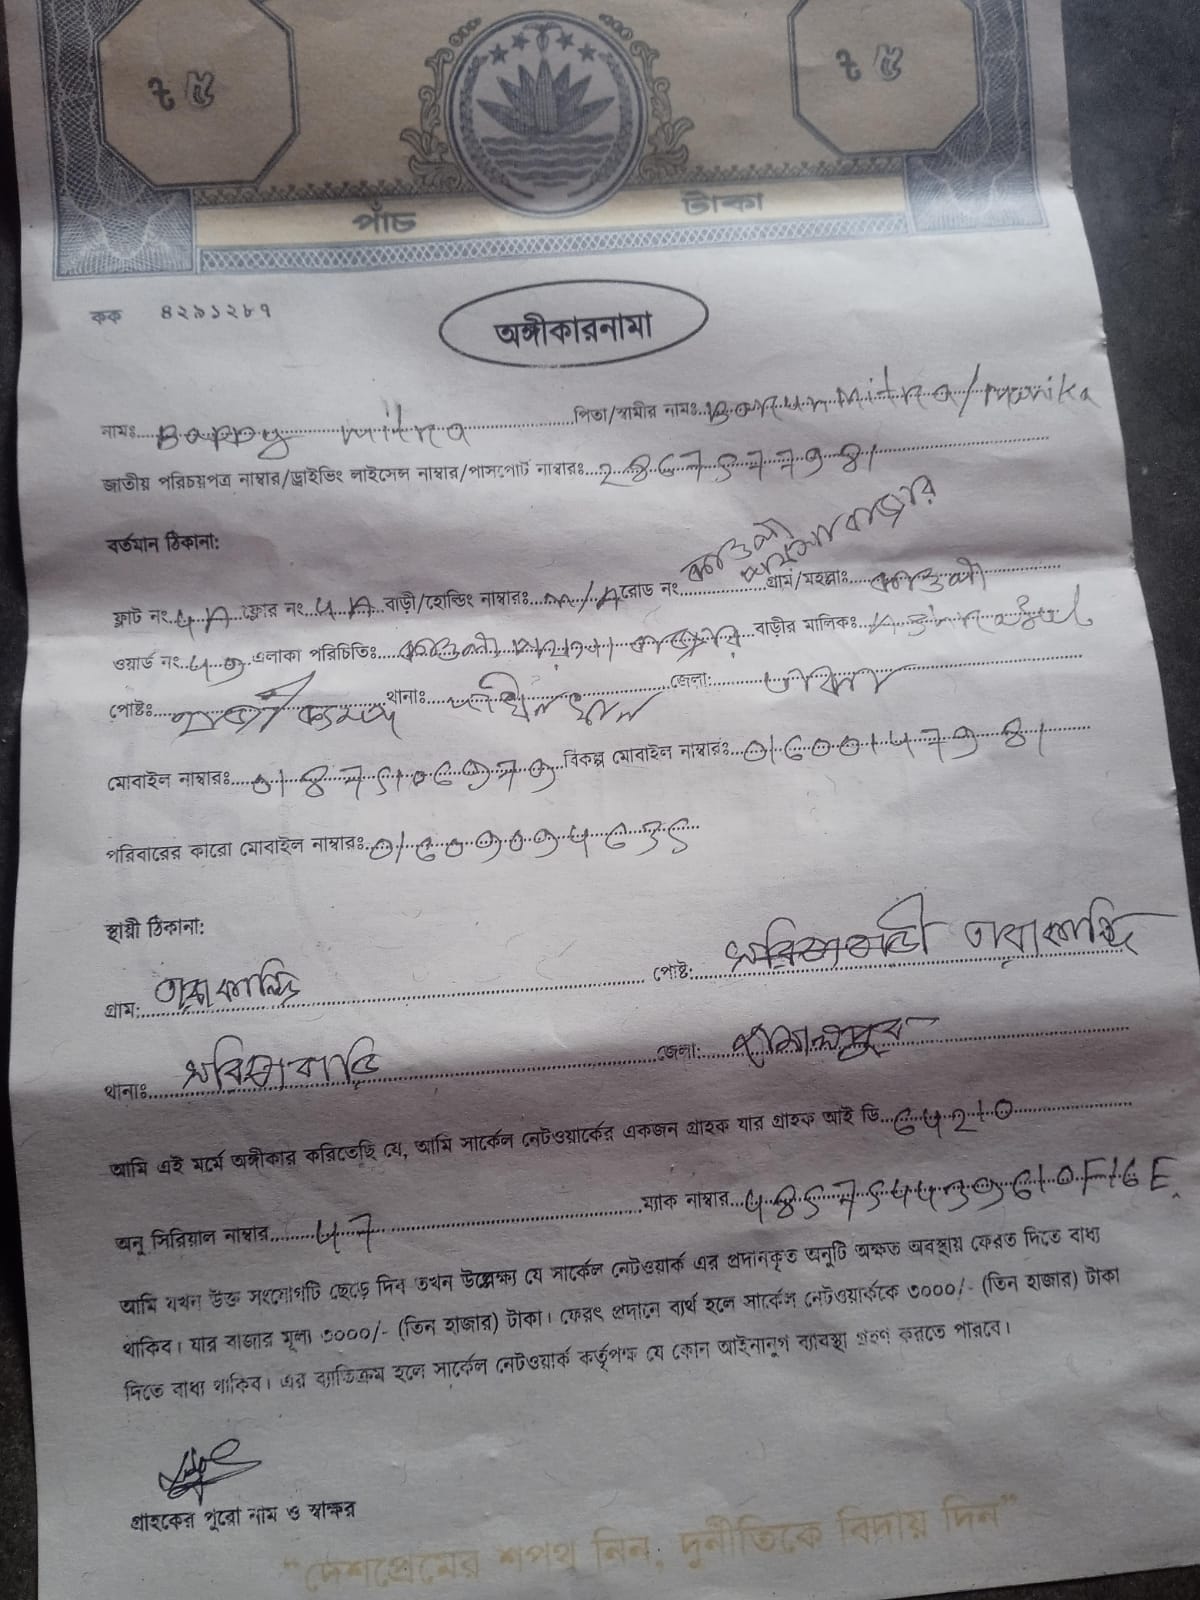 ৳ ৫
৳ ৫
পাঁচ টাকা
কক ৪২৯১২৮৭
অঙ্গীকারনামা
নামঃ Bappy mitra পিতা/স্বামীর নামঃ Barun mitra/Monika
জাতীয় পরিচয়পত্র নাম্বার/ড্রাইভিং লাইসেন্স নাম্বার/পাসপোর্ট নাম্বারঃ
বর্তমান ঠিকানা:
ফ্লাট নং 4A ফ্লোর নং 4A বাড়ী/হোল্ডিং নাম্বারঃ রোড নং গ্রাম/মহল্লাঃ কাওলা
ওয়ার্ড নং এলাকা পরিচিতিঃ কাওলা বাজার বাড়ীর মালিকঃ
পোষ্টঃ থানাঃ দক্ষিনখান জেলা: ঢাকা
মোবাইল নাম্বারঃ বিকল্প মোবাইল নাম্বারঃ
পরিবারের কারো মোবাইল নাম্বারঃ
স্থায়ী ঠিকানা:
গ্রাম: তারাকান্দি পোষ্ট: সরিষাবাড়ী তারাকান্দি
থানাঃ সরিষাবাড়ি জেলা: জামালপুর
আমি এই মর্মে অঙ্গীকার করিতেছি যে, আমি সার্কেল নেটওয়ার্কের একজন গ্রাহক যার গ্রাহক আই ডি 64210
অনু সিরিয়াল নাম্বার 47 ম্যাক নাম্বার
আমি যখন উক্ত সংযোগটি ছেড়ে দিব তখন উল্লেক্ষ্য যে সার্কেল নেটওয়ার্ক এর প্রদানকৃত অনুটি অক্ষত অবস্থায় ফেরত দিতে বাধ্য
থাকিব। যার বাজার মূল্য ৩০০০/- (তিন হাজার) টাকা। ফেরৎ প্রদানে ব্যর্থ হলে সার্কেল নেটওয়ার্ককে ৩০০০/- (তিন হাজার) টাকা
দিতে বাধ্য থাকিব। এর ব্যতিক্রম হলে সার্কেল নেটওয়ার্ক কর্তৃপক্ষ যে কোন আইনানুগ ব্যাবস্থা গ্রহণ করতে পারবে।
গ্রাহকের পুরো নাম ও স্বাক্ষর
“দেশপ্রেমের শপথ নিন, দুর্নীতিকে বিদায় দিন”